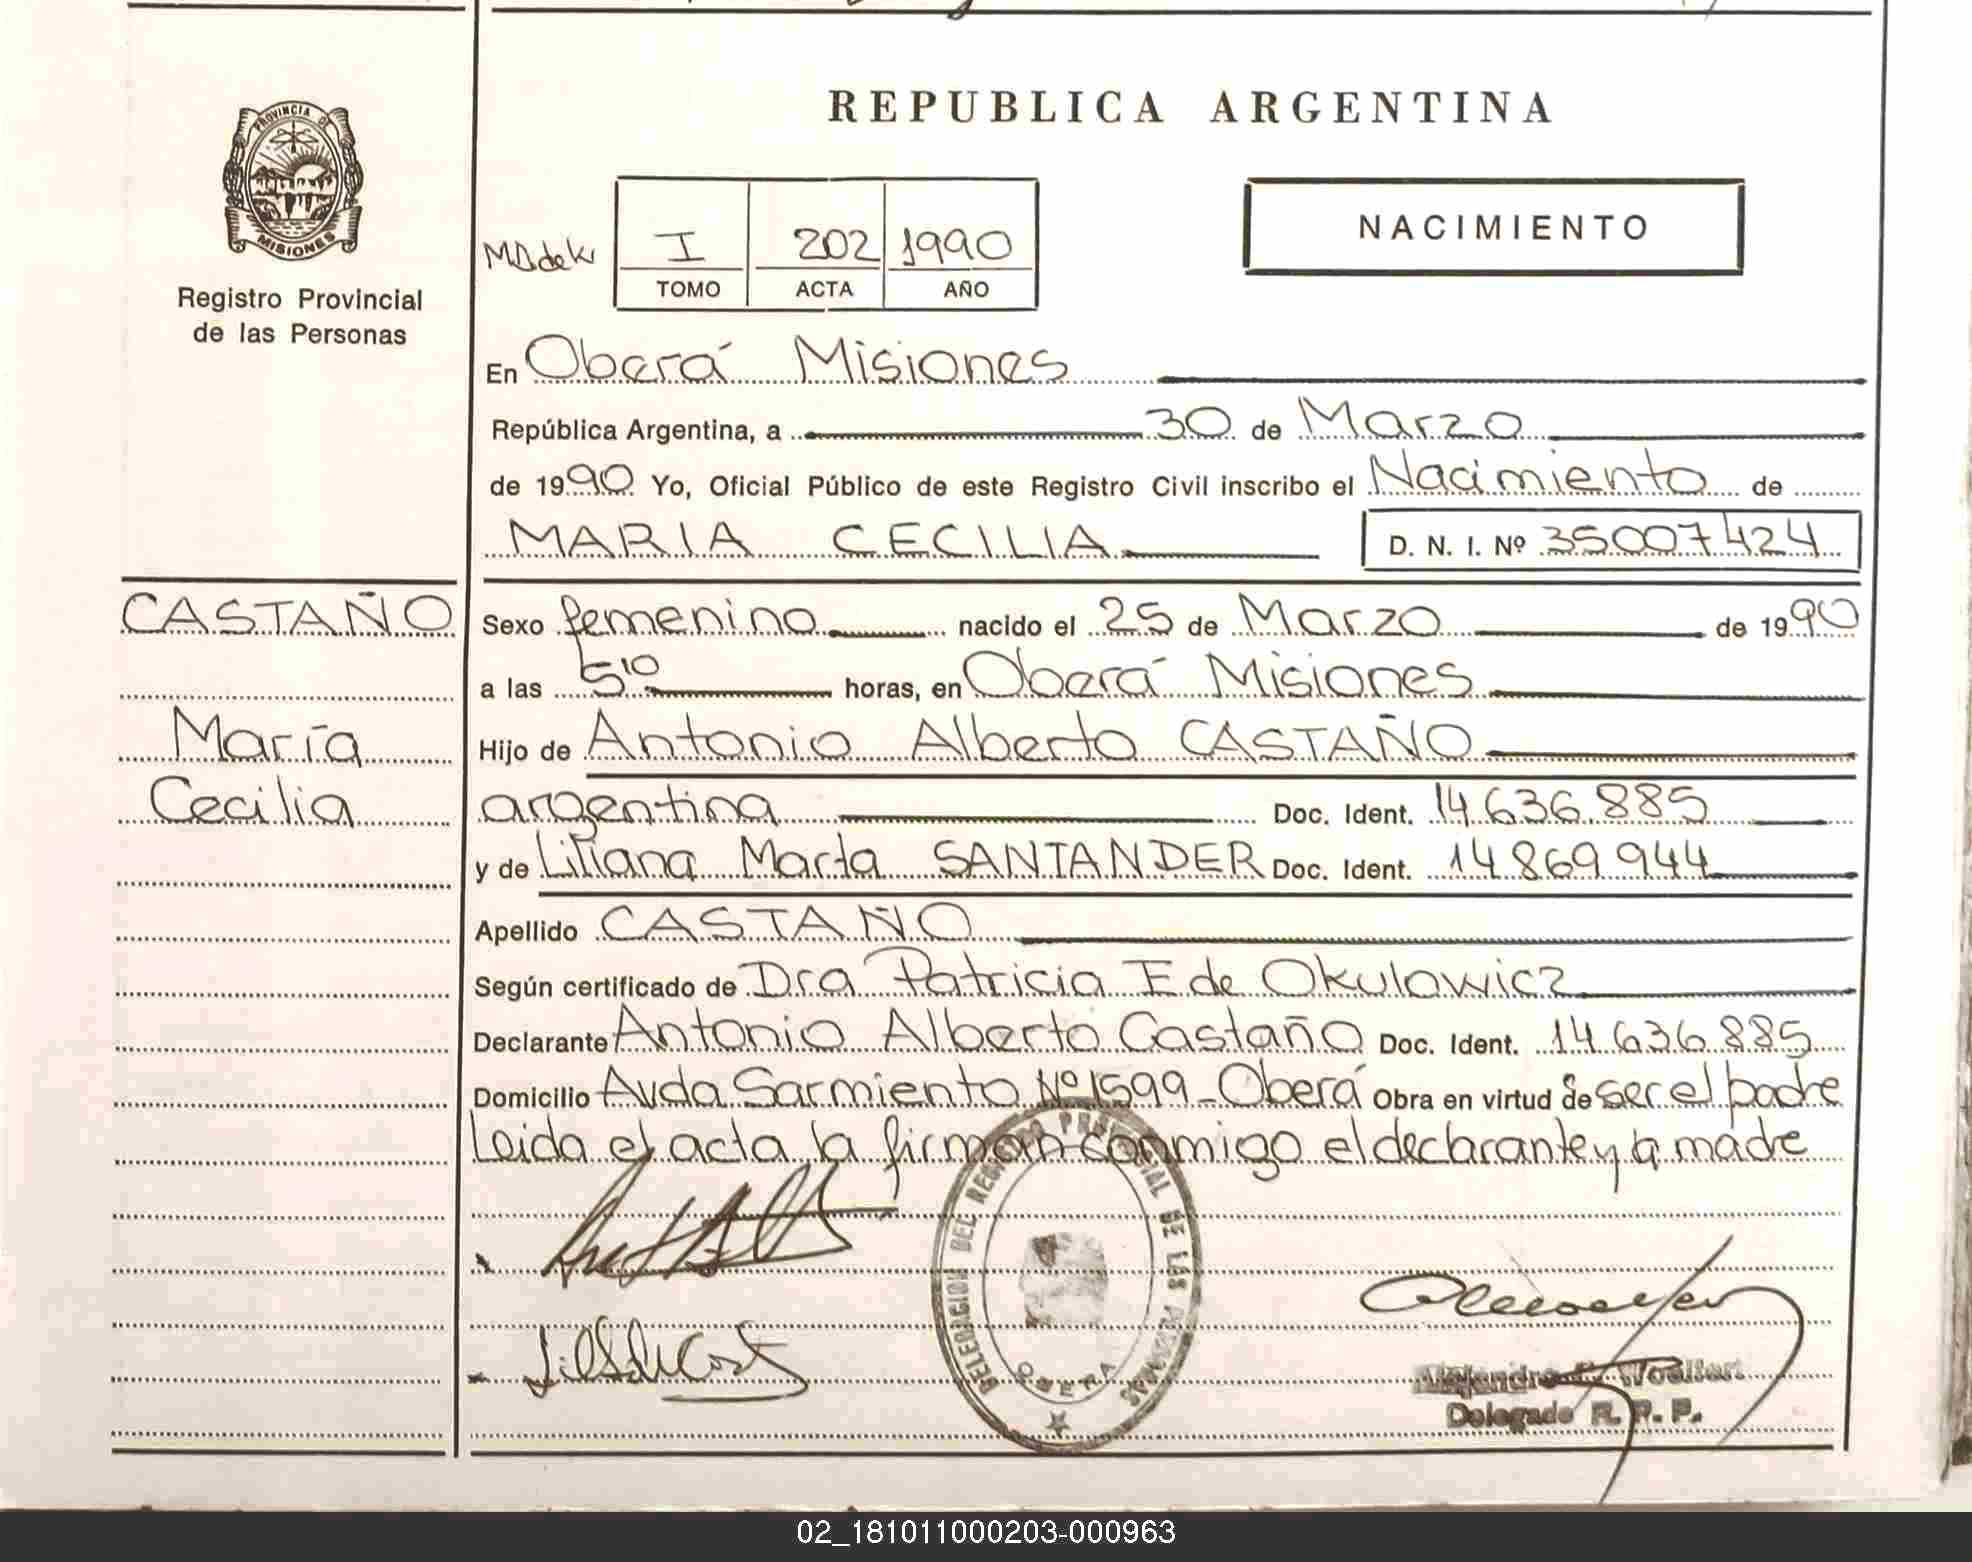 PROVINCIA DE
MISIONES
Registro Provincial
de las Personas
REPUBLICA ARGENTINA
NACIMIENTO
I 202 1990
TOMO ACTA AÑO
En Oberá Misiones
República Argentina, a 30 de Marzo
de 1990 Yo, Oficial Público de este Registro Civil inscribo el Nacimiento de
MARIA CECILIA D. N. I. Nº 35007424
CASTAÑO
María
Cecilia
Sexo femenino nacido el 25 de Marzo de 1990
a las 5 10 horas, en Oberá Misiones
Hijo de Antonio Alberto CASTAÑO
argentina Doc. Ident. 14.636.885
y de Liliana Marta SANTANDER Doc. Ident. 14869944
Apellido CASTAÑO
Según certificado de Dra Patricia E de Okulowicz
Declarante Antonio Alberto Castaño Doc. Ident. 14.636.885
Domicilio Avda Sarmiento Nº 1599 - Oberá Obra en virtud de ser el padre
Leida el acta la firman conmigo el declarante y la madre
DELEGACION DEL REGISTRO PROVINCIAL DE LAS PERSONAS
OBERA
Alejandro Woelfert
Delegado R. P. P.
02_181011000203-000963